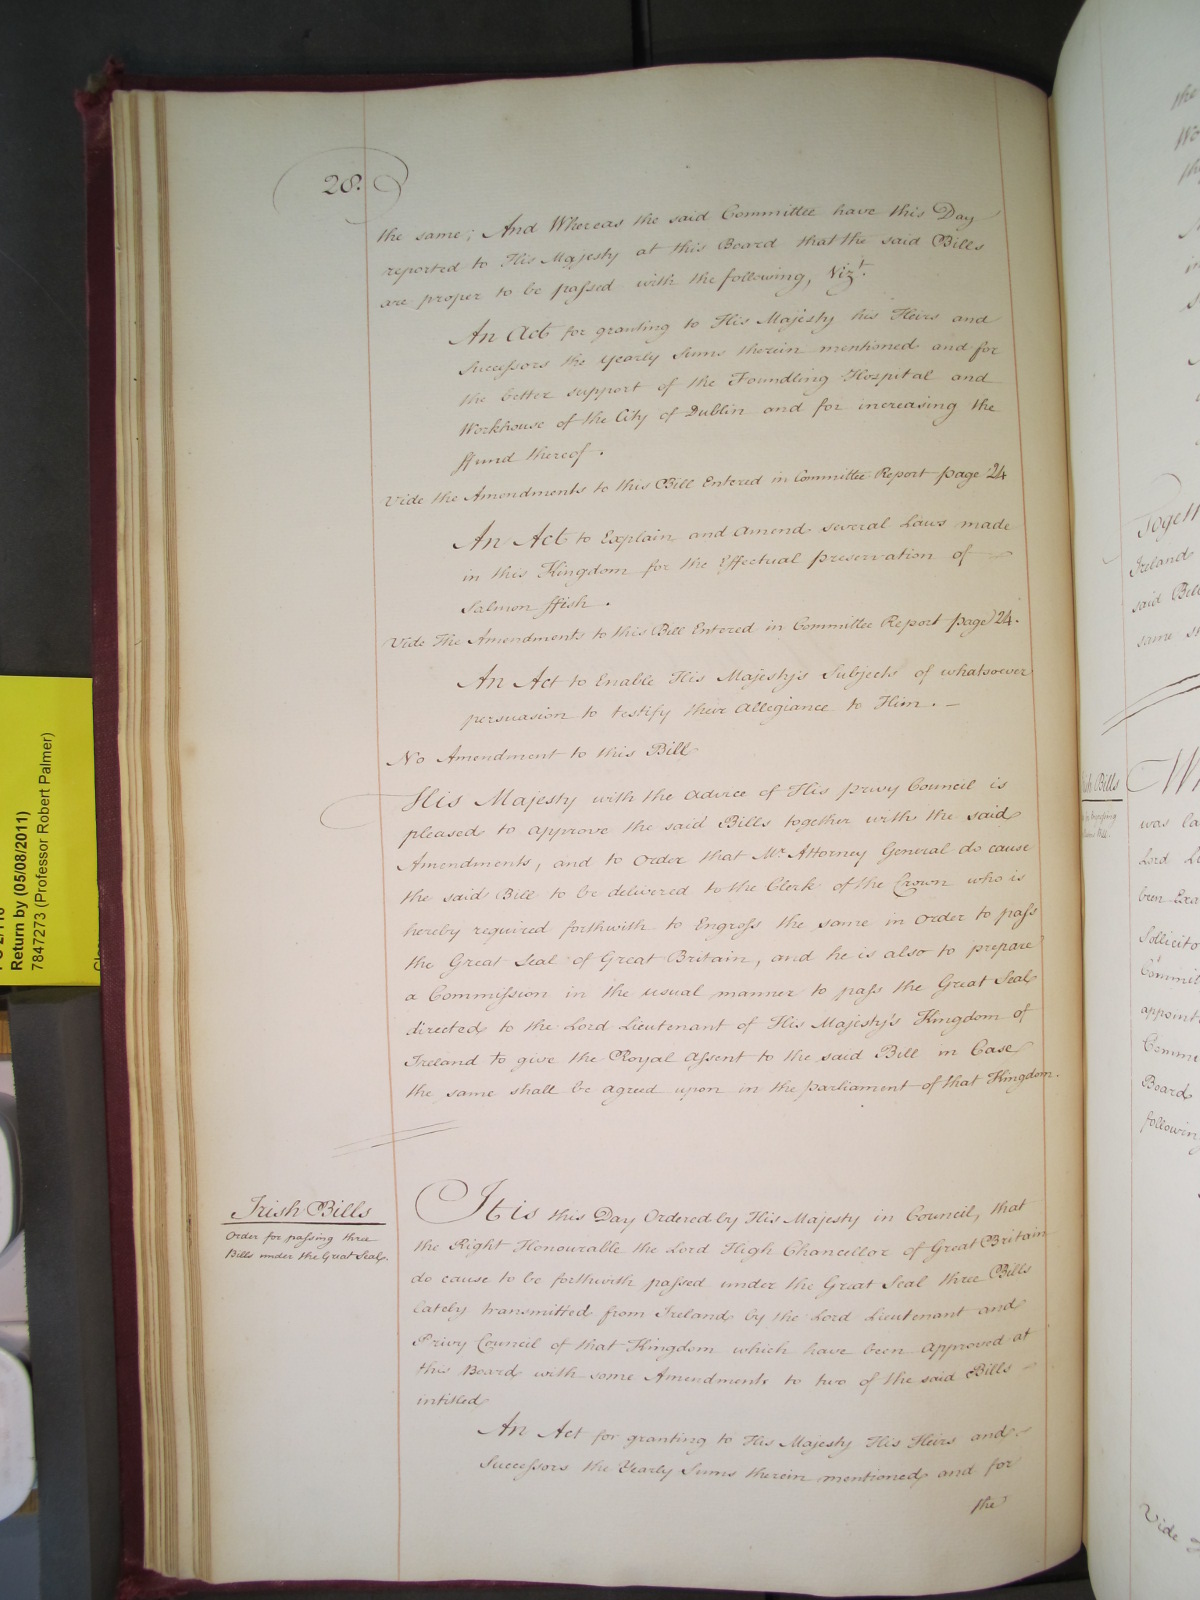 28.
the same; And Whereas the said Committee have this Day
reported to His Majesty at this Board that the said Bills
are proper to be passed with the following, Vizt.
An Act for granting to His Majesty his Heirs and
Successors the yearly Sums therein mentioned and for
the better support of the Foundling Hospital and
Workhouse of the City of Dublin and for increasing the
ffund thereof.
Vide the Amendments to this Bill Entered in Committee Report page 24
An Act to Explain and Amend several Laws made
in this Kingdom for the Effectual preservation of
Salmon ffish.
Vide The Amendments to this Bill Entered in Committee Report page 24.
An Act to Enable His Majesty's Subjects of whatsoever
persuasion to testify their Allegiance to Him. –
No Amendment to this Bill
His Majesty with the advice of His privy Council is
pleased to approve the said Bills together with the said
Amendments, and to Order that Mr. Attorney General do cause
the said Bill to be delivered to the Clerk of the Crown who is
hereby required forthwith to Engross the same in order to pass
the Great Seal of Great Britain, and he is also to prepare
a Commission in the usual manner to pass the Great Seal
directed to the Lord Lieutenant of His Majesty's Kingdom of
Ireland to give the Royal Assent to the said Bill in Case
the same shall be agreed upon in the parliament of that Kingdom.
Irish Bills
Order for passing three
Bills under the Great Seal.
It is this Day Ordered by His Majesty in Council, that
the Right Honourable the Lord High Chancellor of Great Britain
do cause to be forthwith passed under the Great Seal three Bills
lately transmitted from Ireland by the Lord Lieutenant and
Privy Council of that Kingdom which have been approved at
this Board with some Amendments to two of the said Bills –
intitled
An Act for granting to His Majesty His Heirs and
Successors the Yearly Sums therein mentioned and for
the
Return by (05/08/2011)
7847273 (Professor Robert Palmer)
the
Ireland
said Bil
same s
Bills
was la
Lord L
been Exa
Sollicito
Commit
appoint
Comm
Board
following
Vide